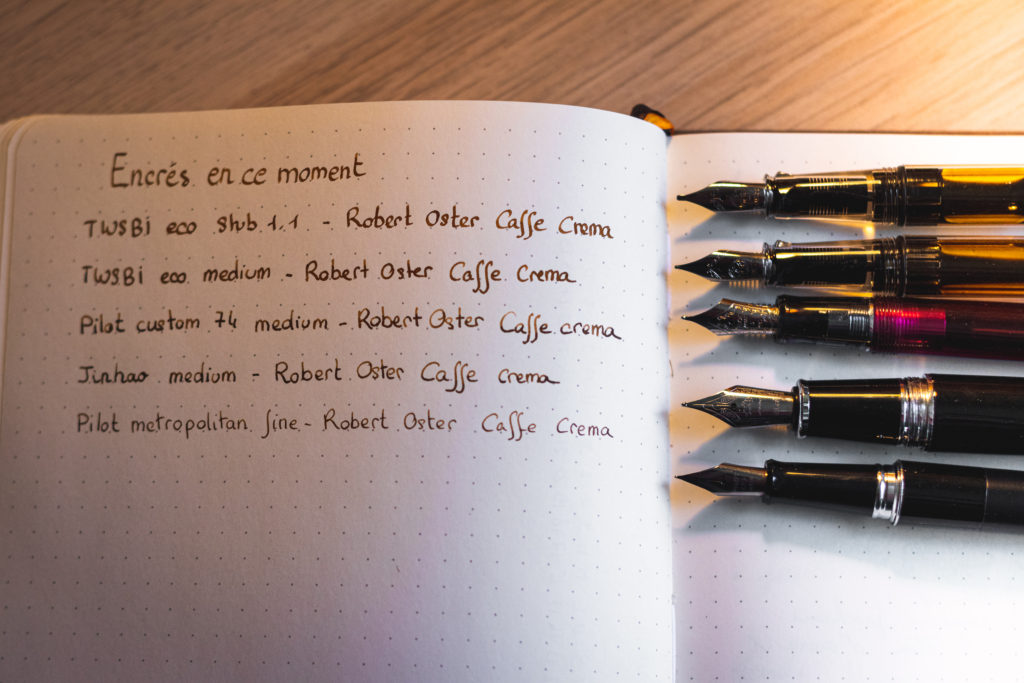 Encrés en ce moment
TWSBi eco Stub 1.1 - Robert Oster Caffe Crema
TWSBi eco medium - Robert Oster Caffe Crema
Pilot custom 74 medium - Robert Oster Caffe crema
Jinhao medium - Robert Oster Caffe crema
Pilot metropolitan fine - Robert Oster Caffe Crema